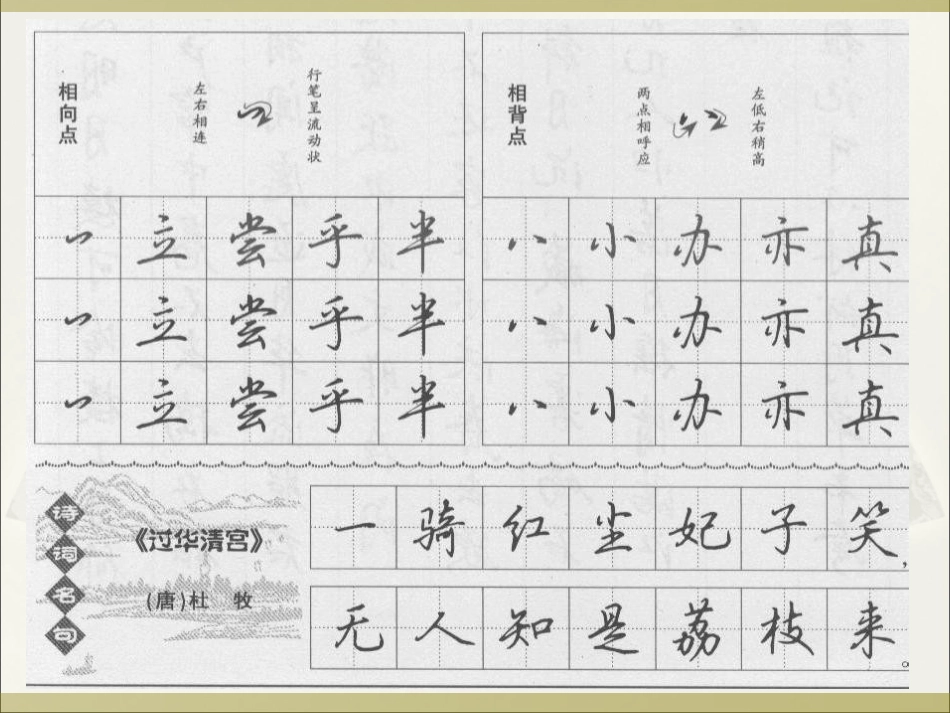 相向点
左右相连
行笔呈流动状
立 尝 乎 半
立 尝 乎 半
立 尝 乎 半
相背点
两点相呼应
左低右稍高
八 小 办 亦 真
八 小 办 亦 真
八 小 办 亦 真
诗词名句
《过华清宫》
(唐)杜 牧
一骑红尘妃子笑，
无人知是荔枝来。